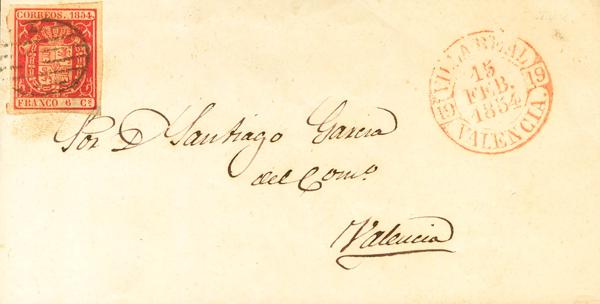 CORREOS. 1854.
FRANCO 6 Cs
VILLARREAL
15
FEB.
1854
19 19
VALENCIA
Sor D Santiago Garcia
del Como
Valencia